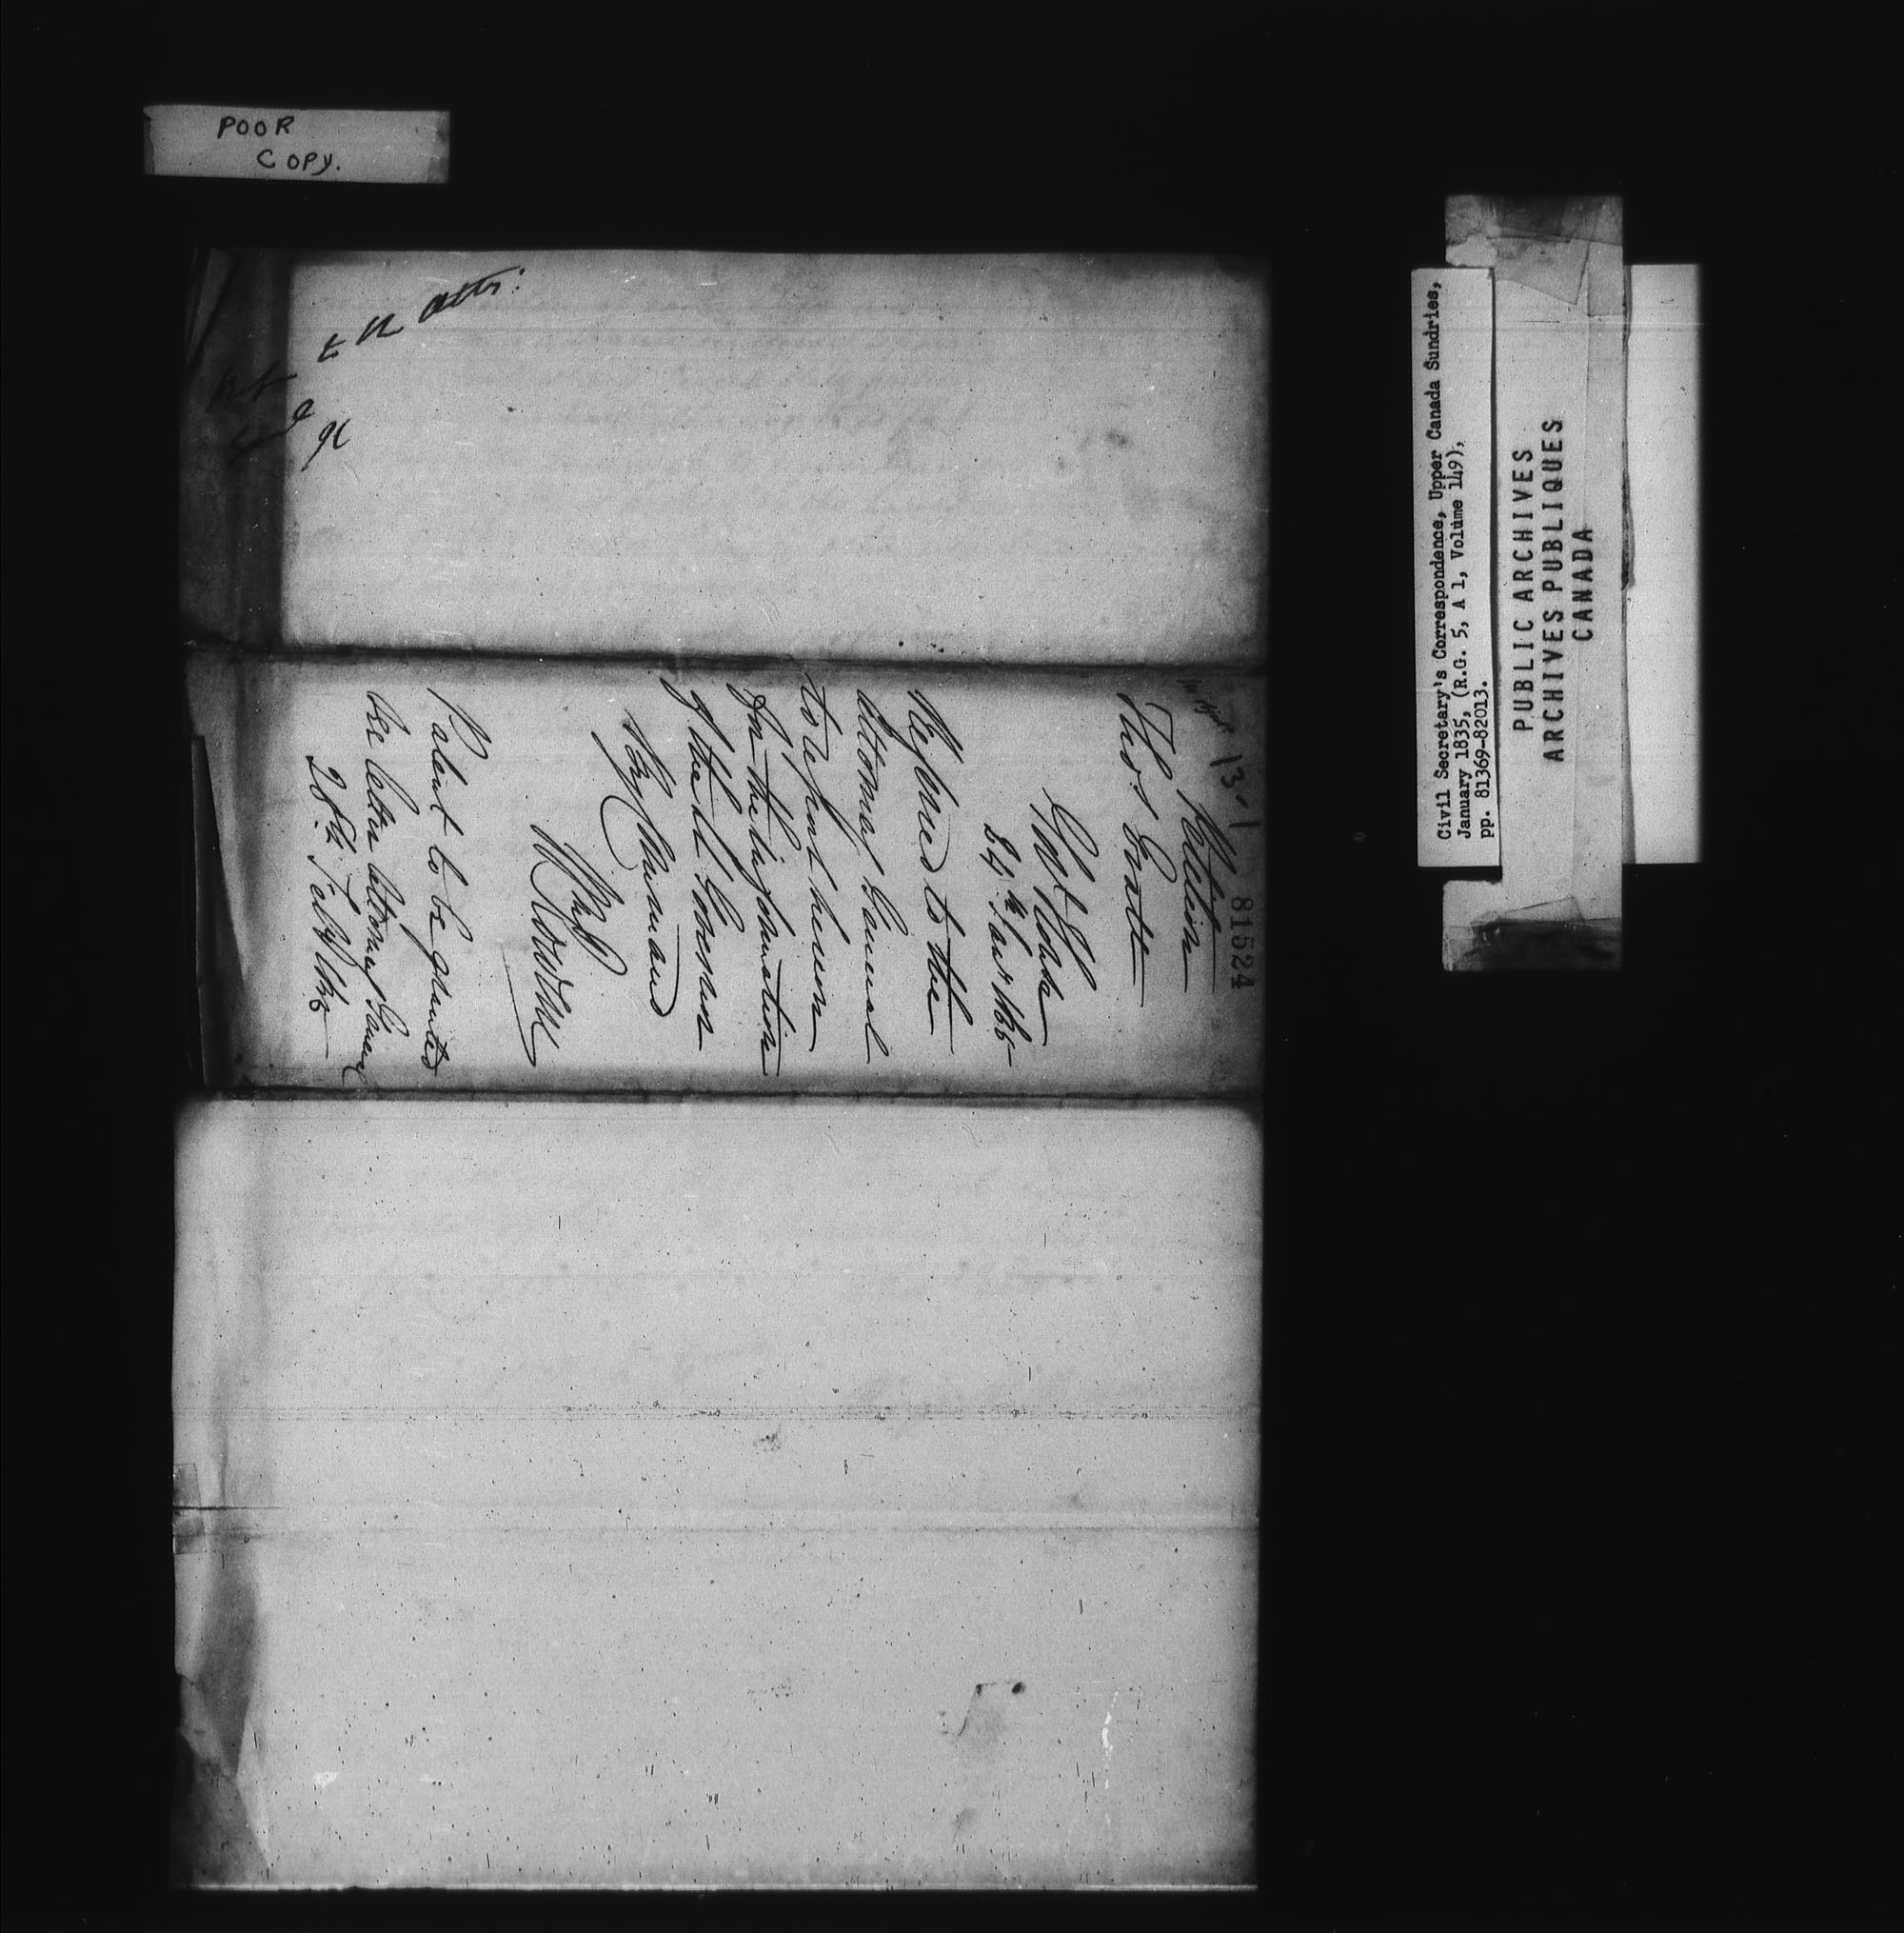 POOR
COPY.
to the Atty:
81524
13.1
Petition
Thos Evatt
Govt House
24th Jany 1835
Referred to the
Attorney General
to report hereon
for the information
of the Lt Governor
By Command
Wm Rowan
Patent to be granted
See letter Attorney General
28th Feby 1835
Civil Secretary's Correspondence, Upper Canada Sundries,
January 1835, (R.G. 5, A 1, Volume 149),
pp. 81369-82013.
PUBLIC ARCHIVES
ARCHIVES PUBLIQUES
CANADA